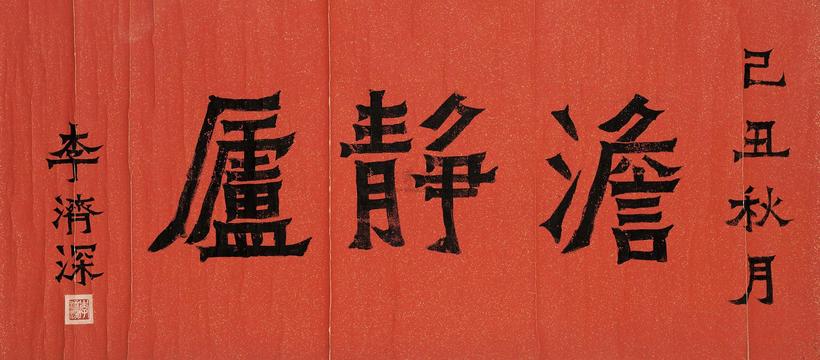 己丑秋月
澹静廬
李濟深